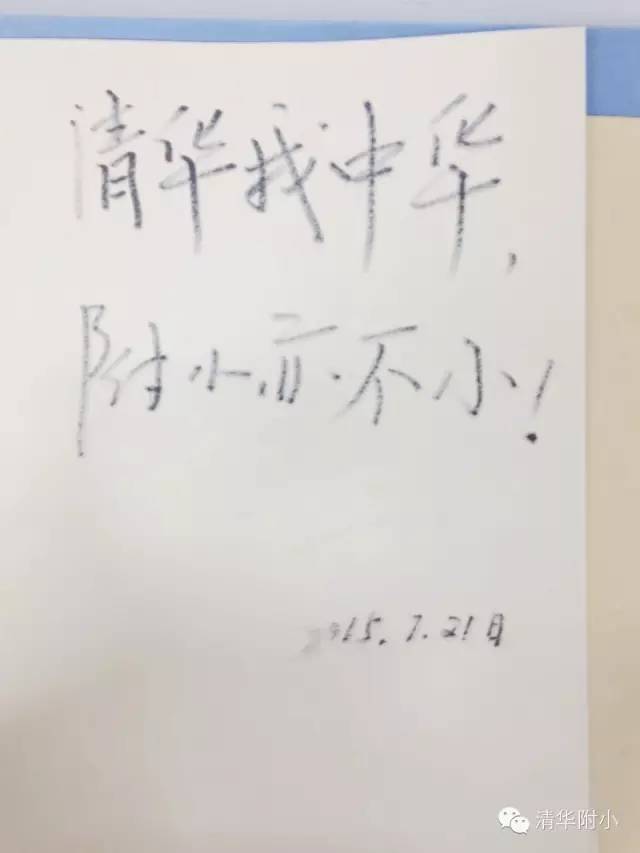 清华我中华,
附小亦不小!
2015.7.21日
清华附小